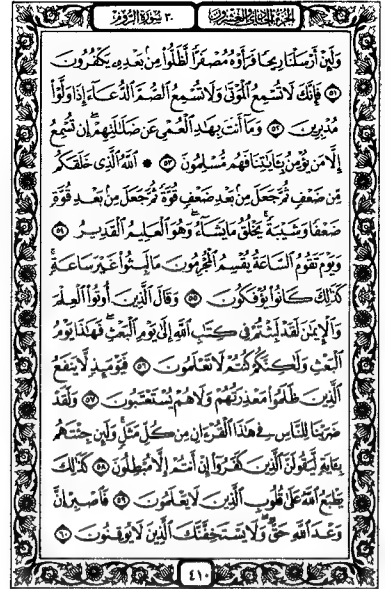 الجزء الحادي والعشرون ٣٠ سورة الروم
وَلَئِنْ أَرْسَلْنَا رِيحًا فَرَأَوْهُ مُصْفَرًّا لَّظَلُّوا۟ مِنۢ بَعْدِهِۦ يَكْفُرُونَ
٥١ فَإِنَّكَ لَا تُسْمِعُ ٱلْمَوْتَىٰ وَلَا تُسْمِعُ ٱلصُّمَّ ٱلدُّعَآءَ إِذَا وَلَّوْا۟
مُدْبِرِينَ ٥٢ وَمَآ أَنتَ بِهَٰدِ ٱلْعُمْىِ عَن ضَلَٰلَتِهِمْ ۖ إِن تُسْمِعُ
إِلَّا مَن يُؤْمِنُ بِـَٔايَٰتِنَا فَهُم مُّسْلِمُونَ ٥٣ * ٱللَّهُ ٱلَّذِى خَلَقَكُم
مِّن ضَعْفٍ ثُمَّ جَعَلَ مِنۢ بَعْدِ ضَعْفٍ قُوَّةً ثُمَّ جَعَلَ مِنۢ بَعْدِ قُوَّةٍ
ضَعْفًا وَشَيْبَةً ۚ يَخْلُقُ مَا يَشَآءُ ۖ وَهُوَ ٱلْعَلِيمُ ٱلْقَدِيرُ ٥٤
وَيَوْمَ تَقُومُ ٱلسَّاعَةُ يُقْسِمُ ٱلْمُجْرِمُونَ مَا لَبِثُوا۟ غَيْرَ سَاعَةٍ ۚ
كَذَٰلِكَ كَانُوا۟ يُؤْفَكُونَ ٥٥ وَقَالَ ٱلَّذِينَ أُوتُوا۟ ٱلْعِلْمَ
وَٱلْإِيمَٰنَ لَقَدْ لَبِثْتُمْ فِى كِتَٰبِ ٱللَّهِ إِلَىٰ يَوْمِ ٱلْبَعْثِ ۖ فَهَٰذَا يَوْمُ
ٱلْبَعْثِ وَلَٰكِنَّكُمْ كُنتُمْ لَا تَعْلَمُونَ ٥٦ فَيَوْمَئِذٍ لَّا يَنفَعُ
ٱلَّذِينَ ظَلَمُوا۟ مَعْذِرَتُهُمْ وَلَا هُمْ يُسْتَعْتَبُونَ ٥٧ وَلَقَدْ
ضَرَبْنَا لِلنَّاسِ فِى هَٰذَا ٱلْقُرْءَانِ مِن كُلِّ مَثَلٍ ۚ وَلَئِن جِئْتَهُم
بِـَٔايَةٍ لَّيَقُولَنَّ ٱلَّذِينَ كَفَرُوٓا۟ إِنْ أَنتُمْ إِلَّا مُبْطِلُونَ ٥٨ كَذَٰلِكَ
يَطْبَعُ ٱللَّهُ عَلَىٰ قُلُوبِ ٱلَّذِينَ لَا يَعْلَمُونَ ٥٩ فَٱصْبِرْ إِنَّ
وَعْدَ ٱللَّهِ حَقٌّ ۖ وَلَا يَسْتَخِفَّنَّكَ ٱلَّذِينَ لَا يُوقِنُونَ ٦٠
٤١٠